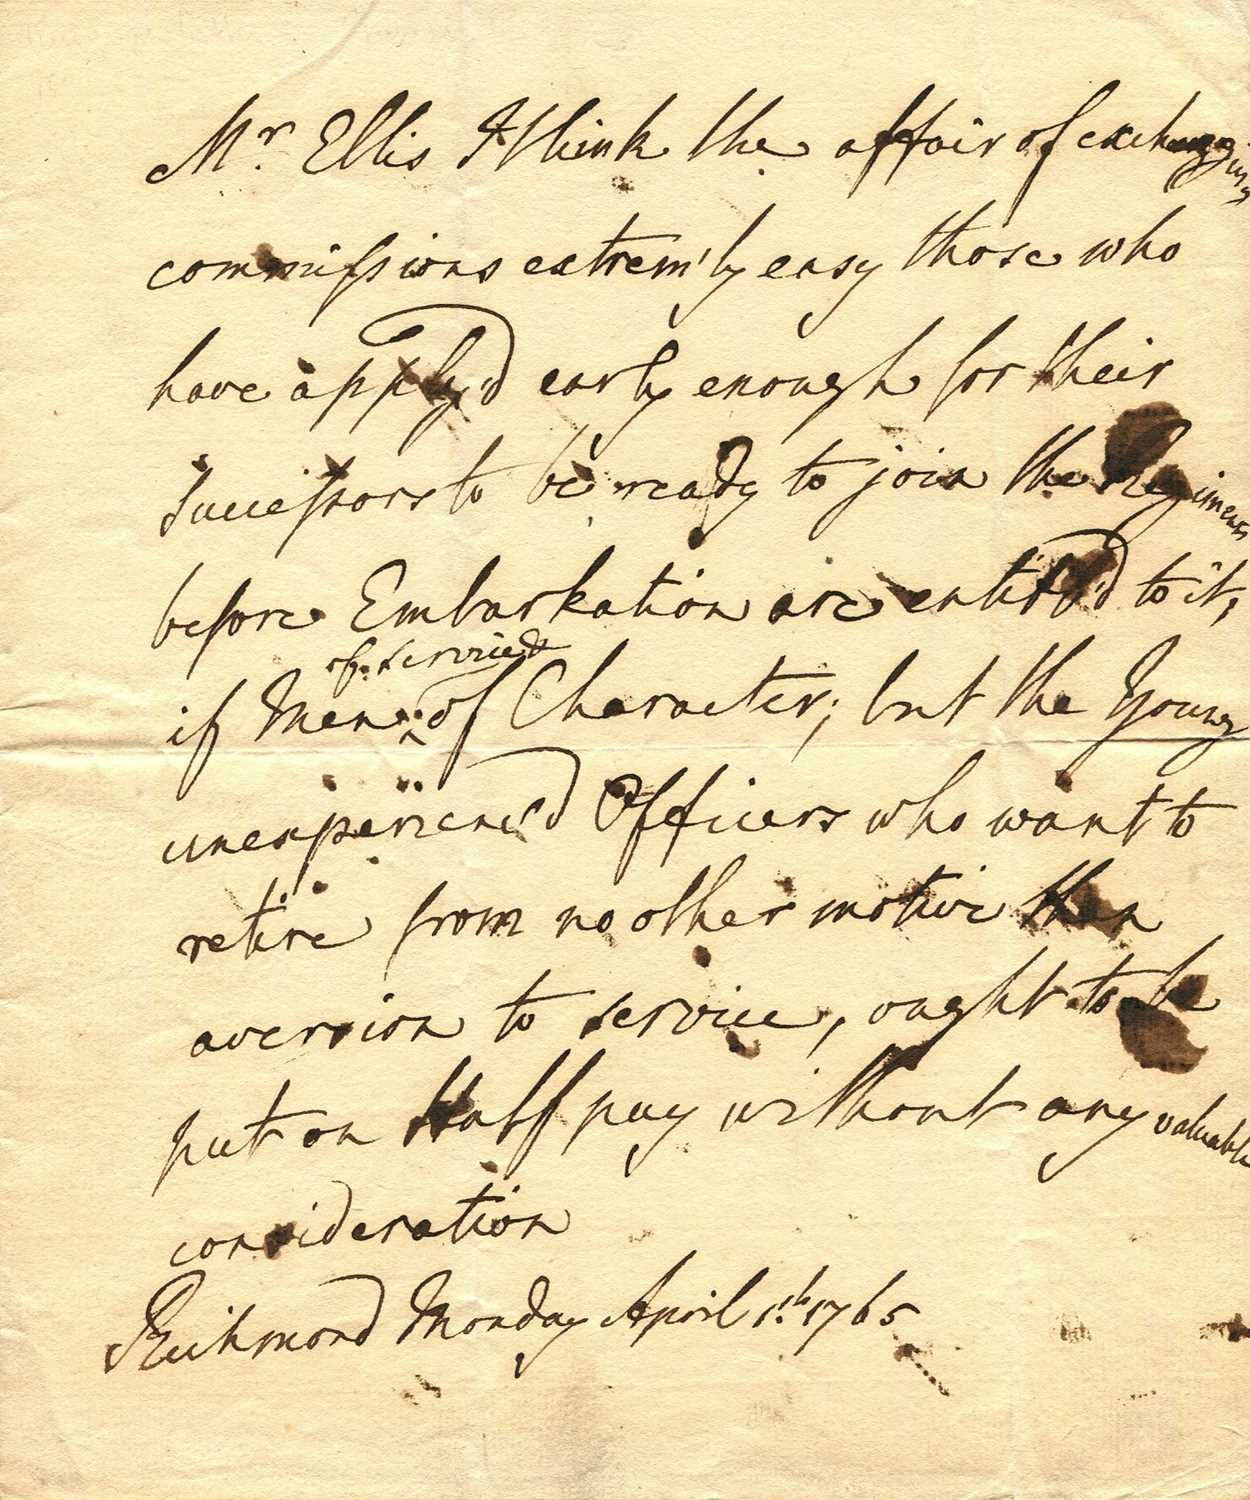 Mr Ellis I think the affair of exchanging
commissions extrem'ly easy those who
have apply'd early enough for their
Successors to be ready to join the Regiments
before Embarkation are entitl'd to it,
of service
if Men ^ of Character; but the Young
unexperienc'd Officers who want to
retire from no other motive then
aversion to service, ought to be
put on Half pay without any valuable
consideration
Richmond Monday April 1th 1765